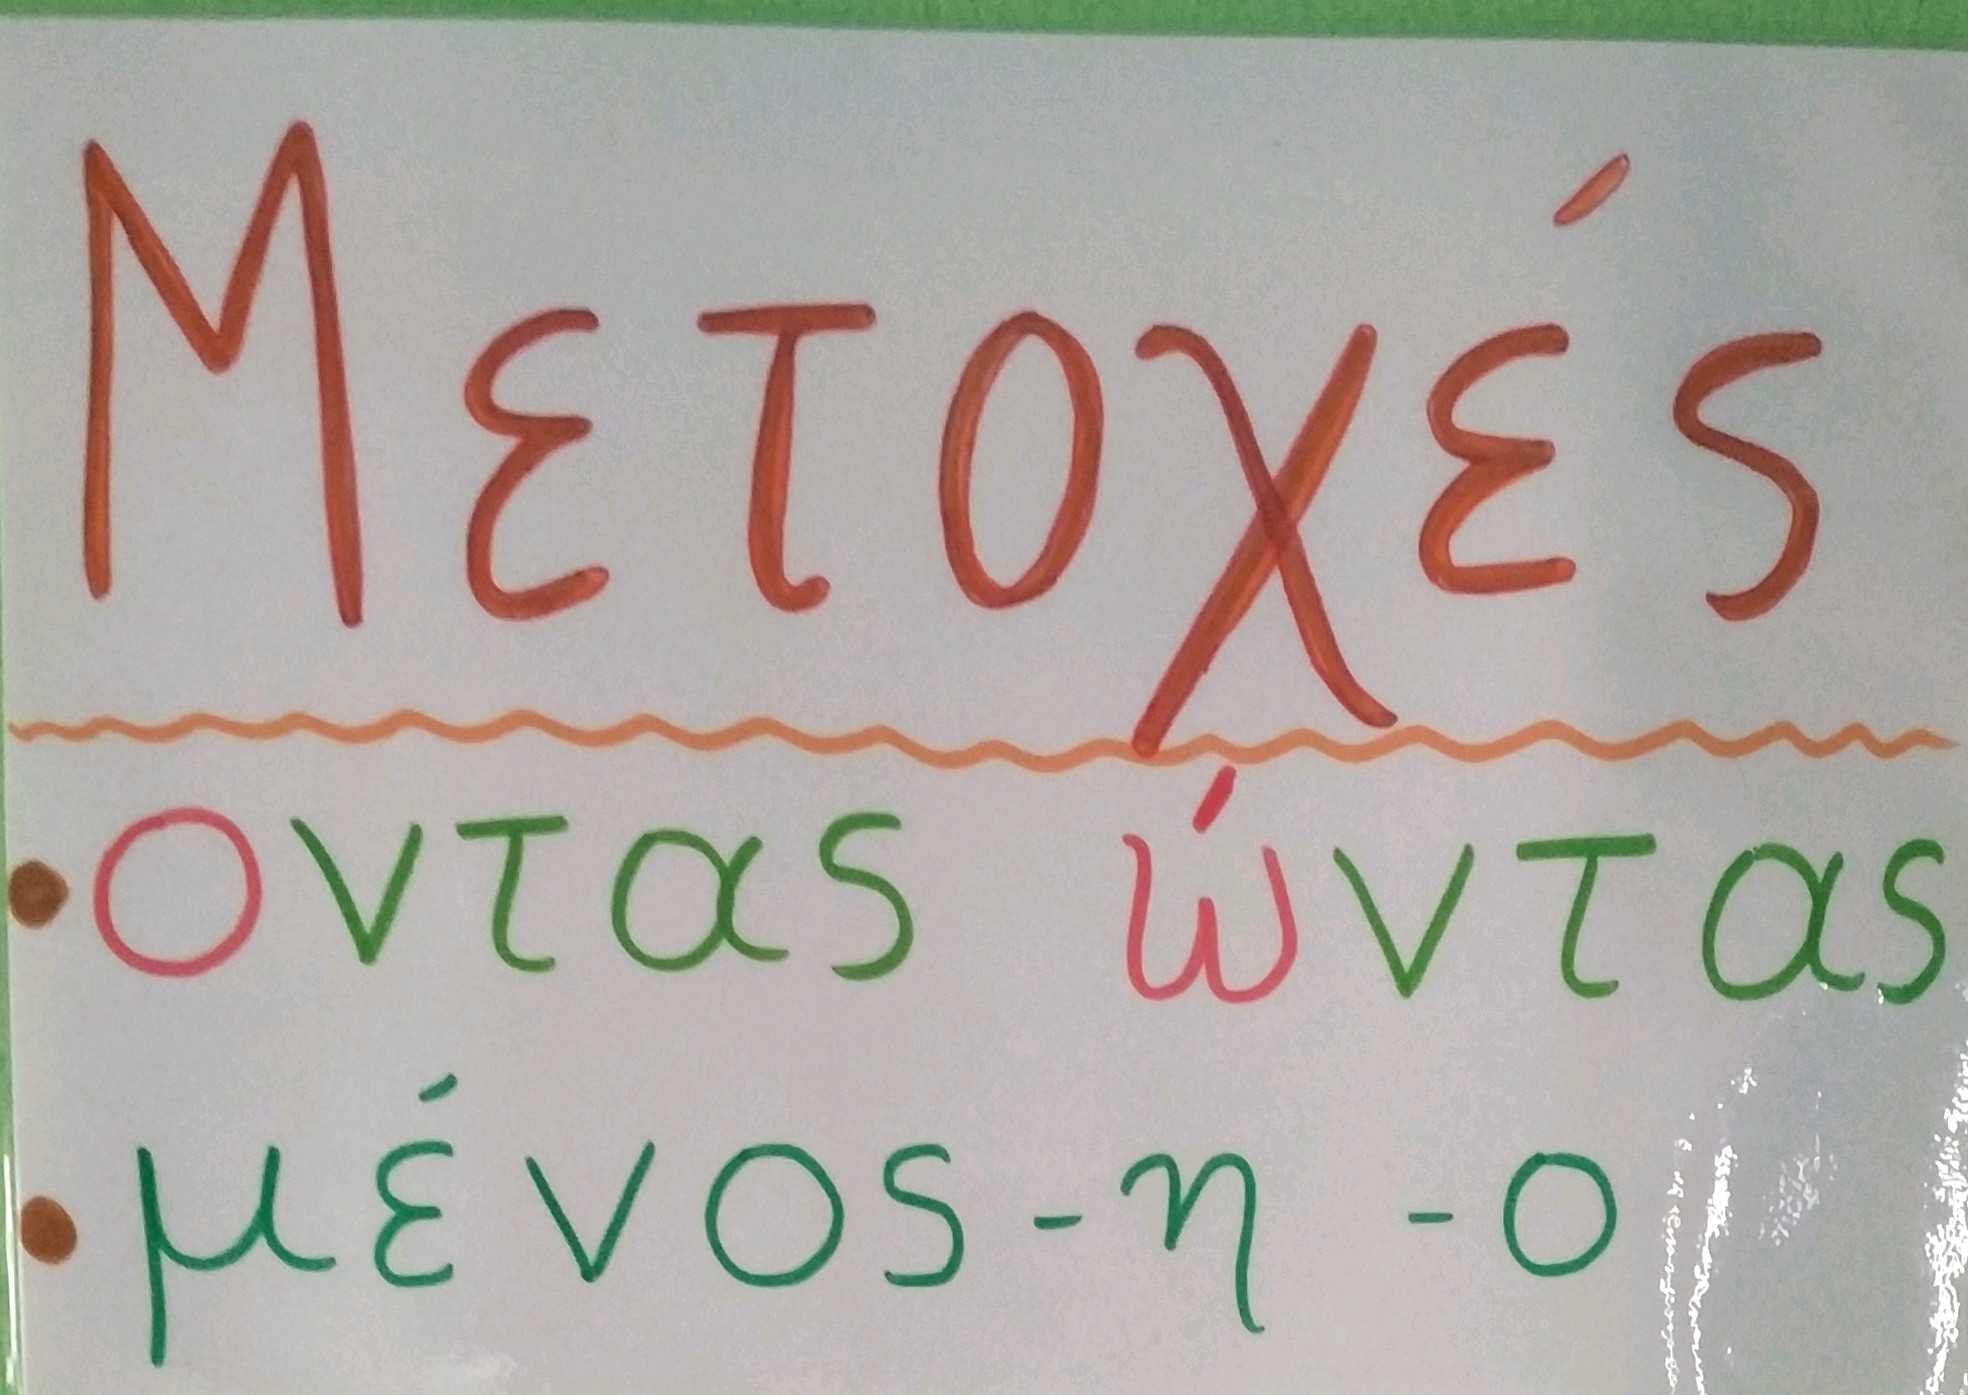 Μετοχές
• οντας ώντας
• μένος -η -ο